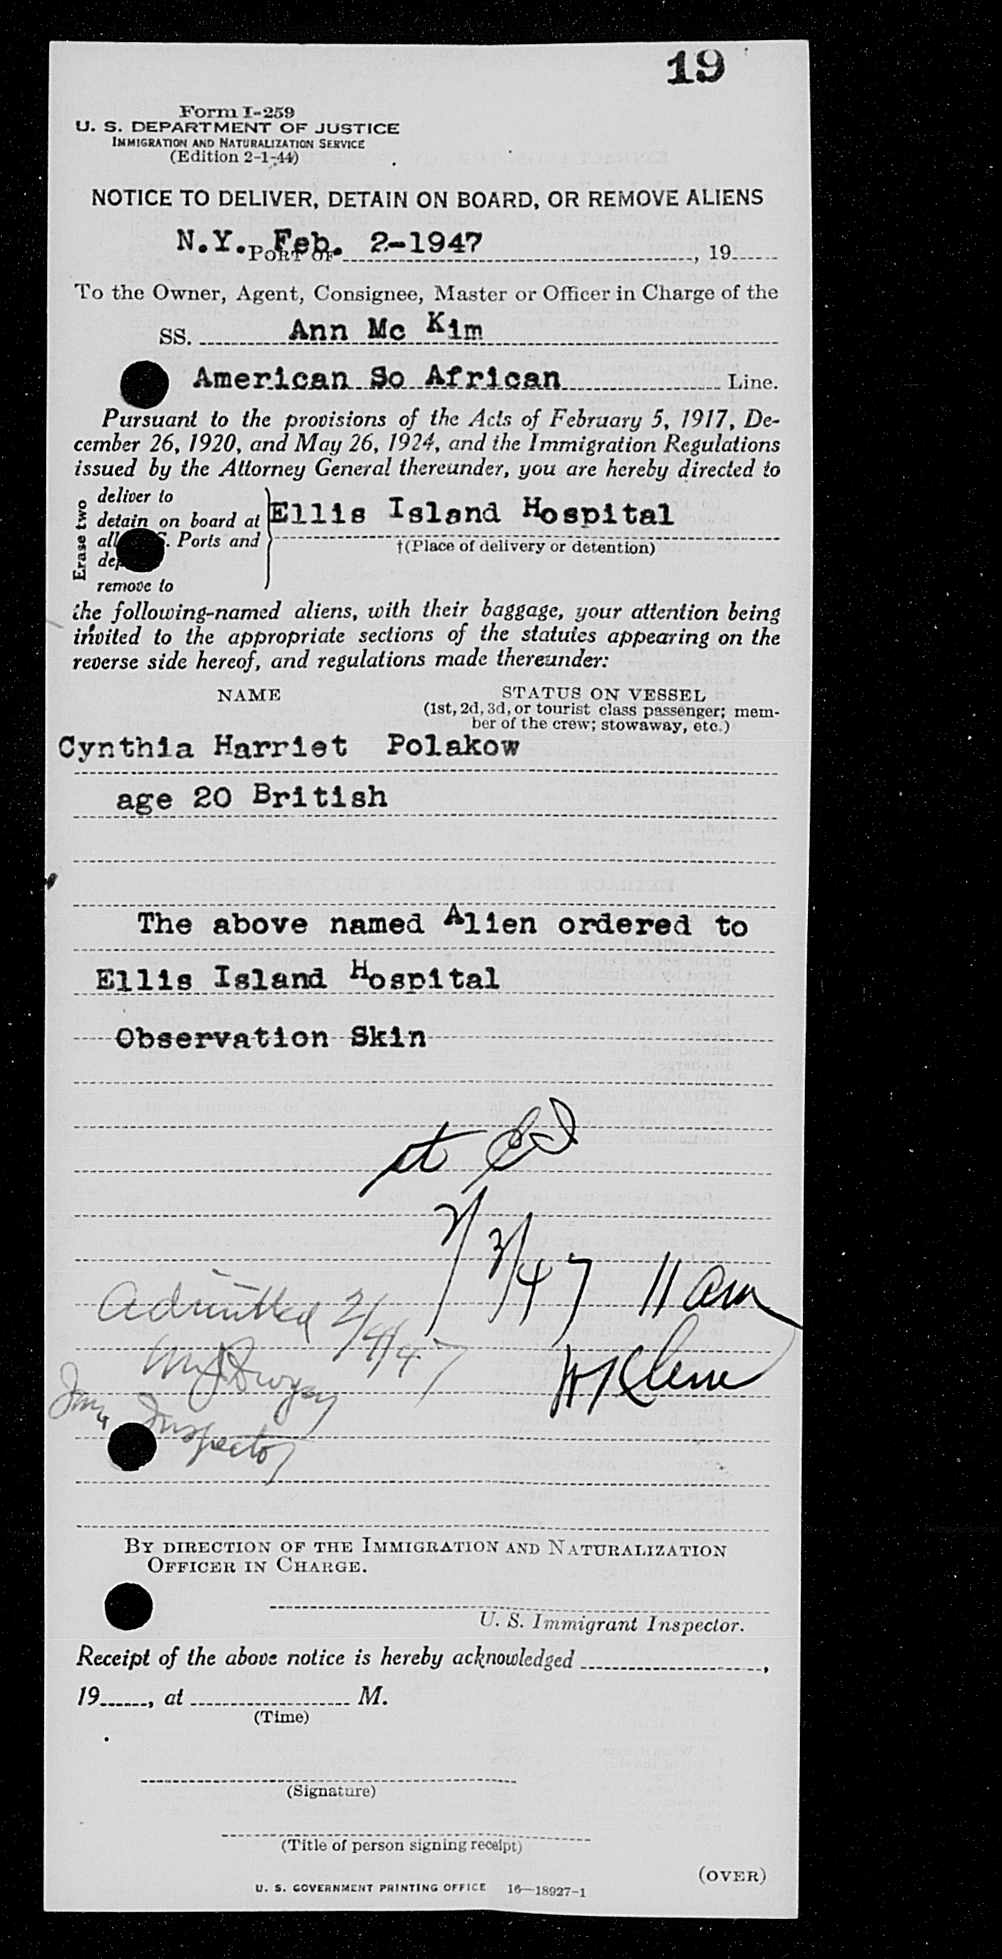 19
Form I-259
U. S. DEPARTMENT OF JUSTICE
IMMIGRATION AND NATURALIZATION SERVICE
(Edition 2-1-44)
NOTICE TO DELIVER, DETAIN ON BOARD, OR REMOVE ALIENS
N.Y. PORT OF Feb. 2-1947, 19
To the Owner, Agent, Consignee, Master or Officer in Charge of the
SS. Ann Mc Kim
American So African Line.
Pursuant to the provisions of the Acts of February 5, 1917, De-
cember 26, 1920, and May 26, 1924, and the Immigration Regulations
issued by the Attorney General thereunder, you are hereby directed to
Erase two
deliver to
detain on board at
all . Ports and
dep
remove to
Ellis Island Hospital
†(Place of delivery or detention)
the following-named aliens, with their baggage, your attention being
invited to the appropriate sections of the statutes appearing on the
reverse side hereof, and regulations made thereunder:
NAME STATUS ON VESSEL
(1st, 2d, 3d, or tourist class passenger; mem-
ber of the crew; stowaway, etc.)
Cynthia Harriet Polakow
age 20 British
The above named Alien ordered to
Ellis Island Hospital
Observation Skin
at EI
2/3/47 11 am
Admitted 2/4/47
W Klene
Imm Inspector
BY DIRECTION OF THE IMMIGRATION AND NATURALIZATION
OFFICER IN CHARGE.
U. S. Immigrant Inspector.
Receipt of the above notice is hereby acknowledged ,
19 , at M.
(Time)
(Signature)
(Title of person signing receipt)
(OVER)
U. S. GOVERNMENT PRINTING OFFICE 16—18927-1